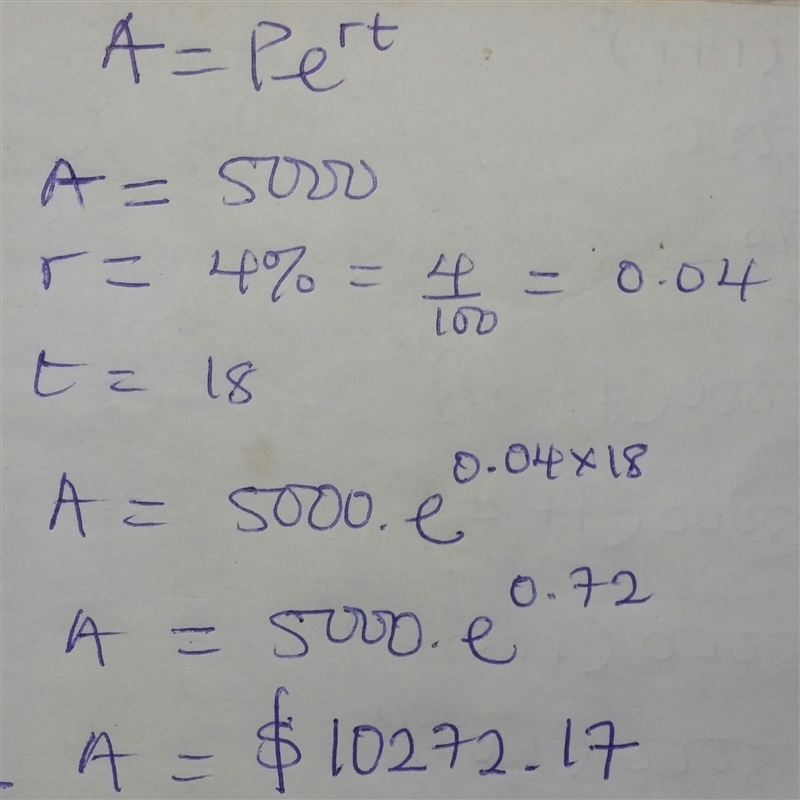 A = Pe^rt
A = 5000
r = 4% = 4/100 = 0.04
t = 18
A = 5000.e^0.04×18
A = 5000.e^0.72
A = $10272.17